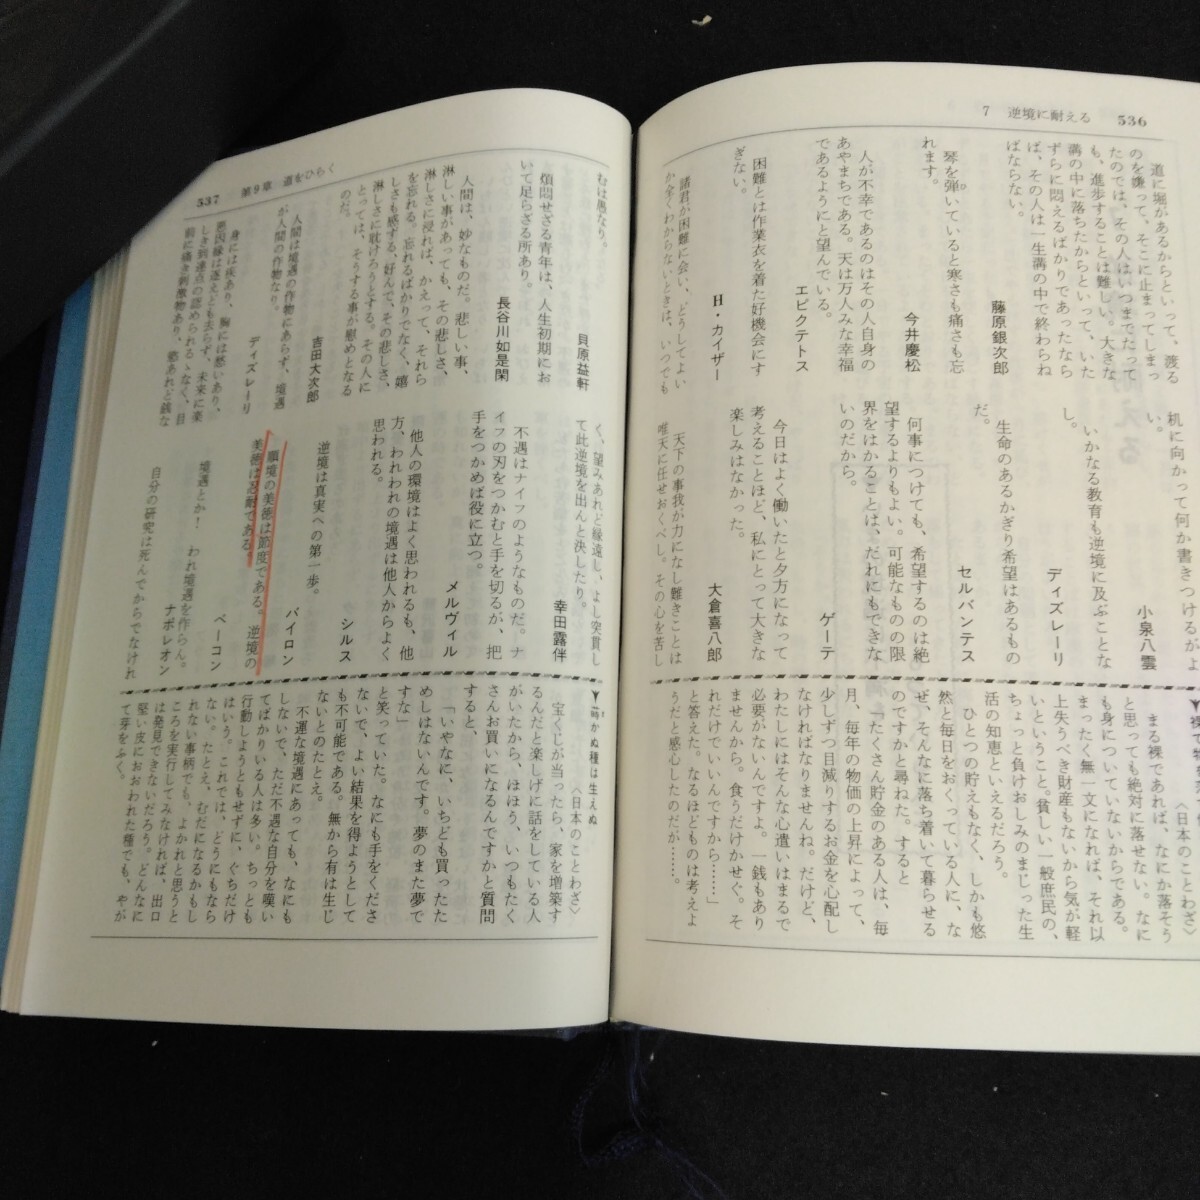 7　逆境に耐える　536
道に堀があるからといって、渡る
のを嫌って、そこに止まってしまっ
たのでは、その人はいつまでたって
も、進歩することは難しい。大きな
溝の中に落ちたからといって、いた
ずらに悶えるばかりであったなら
ば、その人は一生溝の中で終わらね
ばならない。
藤原銀次郎
琴を弾いていると寒さも痛さも忘
れます。
今井慶松
人が不幸であるのはその人自身の
あやまちである。天は万人みな幸福
であるようにと望んでいる。
エピクテトス
困難とは作業衣を着た好機会にす
ぎない。
H・カイザー
諸君が困難に会い、どうしてよい
か全くわからないときは、いつでも
机に向かって何か書きつけるがよ
い。
小泉八雲
いかなる教育も逆境に及ぶことな
し。
ディズレーリ
生命のあるかぎり希望はあるもの
だ。
セルバンテス
何事につけても、希望するのは絶
望するよりもよい。可能なものの限
界をはかることは、だれにもできな
いのだから。
ゲーテ
今日はよく働いたと夕方になって
考えることほど、私にとって大きな
楽しみはなかった。
大倉喜八郎
天下の事我が力になし難きことは
唯天に任せおくべし。その心を苦し
〈日本のことわざ〉
まる裸であれば、なにか落そう
と思っても絶対に落せない。なに
も身につけていないからである。
まったく無一文になれば、それ以
上失うべき財産もないから気が軽
いということ。貧しい一般庶民の、
ちょっと負けおしみのまじった生
活の知恵といえるだろう。
ひとつの貯えもなく、しかも悠
然と毎日をおくっている人に、な
ぜ、そんなに落ち着いて暮らせる
のですかと尋ねた。すると
「たくさん貯金のある人は、毎
月、毎年の物価の上昇によって、
少しずつ目減りするお金を心配し
なければなりませんね。だけど、
わたしにはそんな心遣いはまるで
必要がないんですよ。一銭もあり
ませんから。食うだけかせぐ。そ
れだけでいいんですから……」
と答えた。なるほどものは考えよ
うだと感心したのだが……。
537　第9章　道をひらく
むは愚なり。
貝原益軒
煩悶せざる青年は、人生初期にお
いて足らざる所あり。
長谷川如是閑
人間は、妙なものだ。悲しい事、
淋しい事があっても、その悲しさ、
淋しさに浸れば、かえって、それら
を忘れる。忘れるばかりでなく、嬉
しさも感ずる、好んで、その悲しさ、
淋しさに耽けろうとする。その人に
とっては、そうする事が慰めとなる
のだ。
吉田大次郎
人間は境遇の作物にあらず、境遇
が人間の作物なり。
ディズレーリ
身には疾あり、胸には愁いあり、
悪因縁は逐えども去らず、未来に楽
しき到達点の認められるゝなく、目
前に痛き刺激物あり、慾あれど銭な
く、望みあれど縁遠し、よし突貫し
て此逆境を出んと決したり。
幸田露伴
不遇はナイフのようなものだ。ナ
イフの刃をつかむと手を切るが、把
手をつかめば役に立つ。
メルヴィル
他人の環境はよく思われるも、他
方、われわれの境遇は他人からよく
思われる。
シルス
逆境は真実への第一歩。
バイロン
順境の美徳は節度である。逆境の
美徳は忍耐である。
ベーコン
境遇とか！　われ境遇を作らん。
ナポレオン
自分の研究は死んでからでなけれ
▼蒔かぬ種は生えぬ
〈日本のことわざ〉
宝くじが当ったら、家を増築す
るんだと楽しげに話をしている人
がいたから、ほほう、いつもたく
さんお買いになるんですかと質問
すると、
「いやなに、いちども買ったた
めしはないんです。夢のまた夢で
すな」
と笑っていた。なにも手をくださ
ないで、よい結果を得ようとして
も不可能である。無から有は生じ
ないとのたとえ。
不運な境遇にあっても、なにも
しないで、ただ不遇な自分を嘆い
てばかりいる人は多い。ちっとも
行動しようともせずに、ぐちだけ
はいう。これでは、どうにもなら
ない。たとえ、むだになるかもし
れない事柄でも、よかれと思うと
ころを実行してみなければ、出口
は発見できないだろう。どんなに
堅い皮におおわれた種でも、やが
て芽をふく。